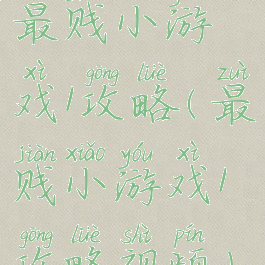 最贱小游
xì gōng lüè zuì
戏/攻略(最
jiàn xiǎo yóu xì
贱小游戏/
gōng lüè shì pín
攻略视频)